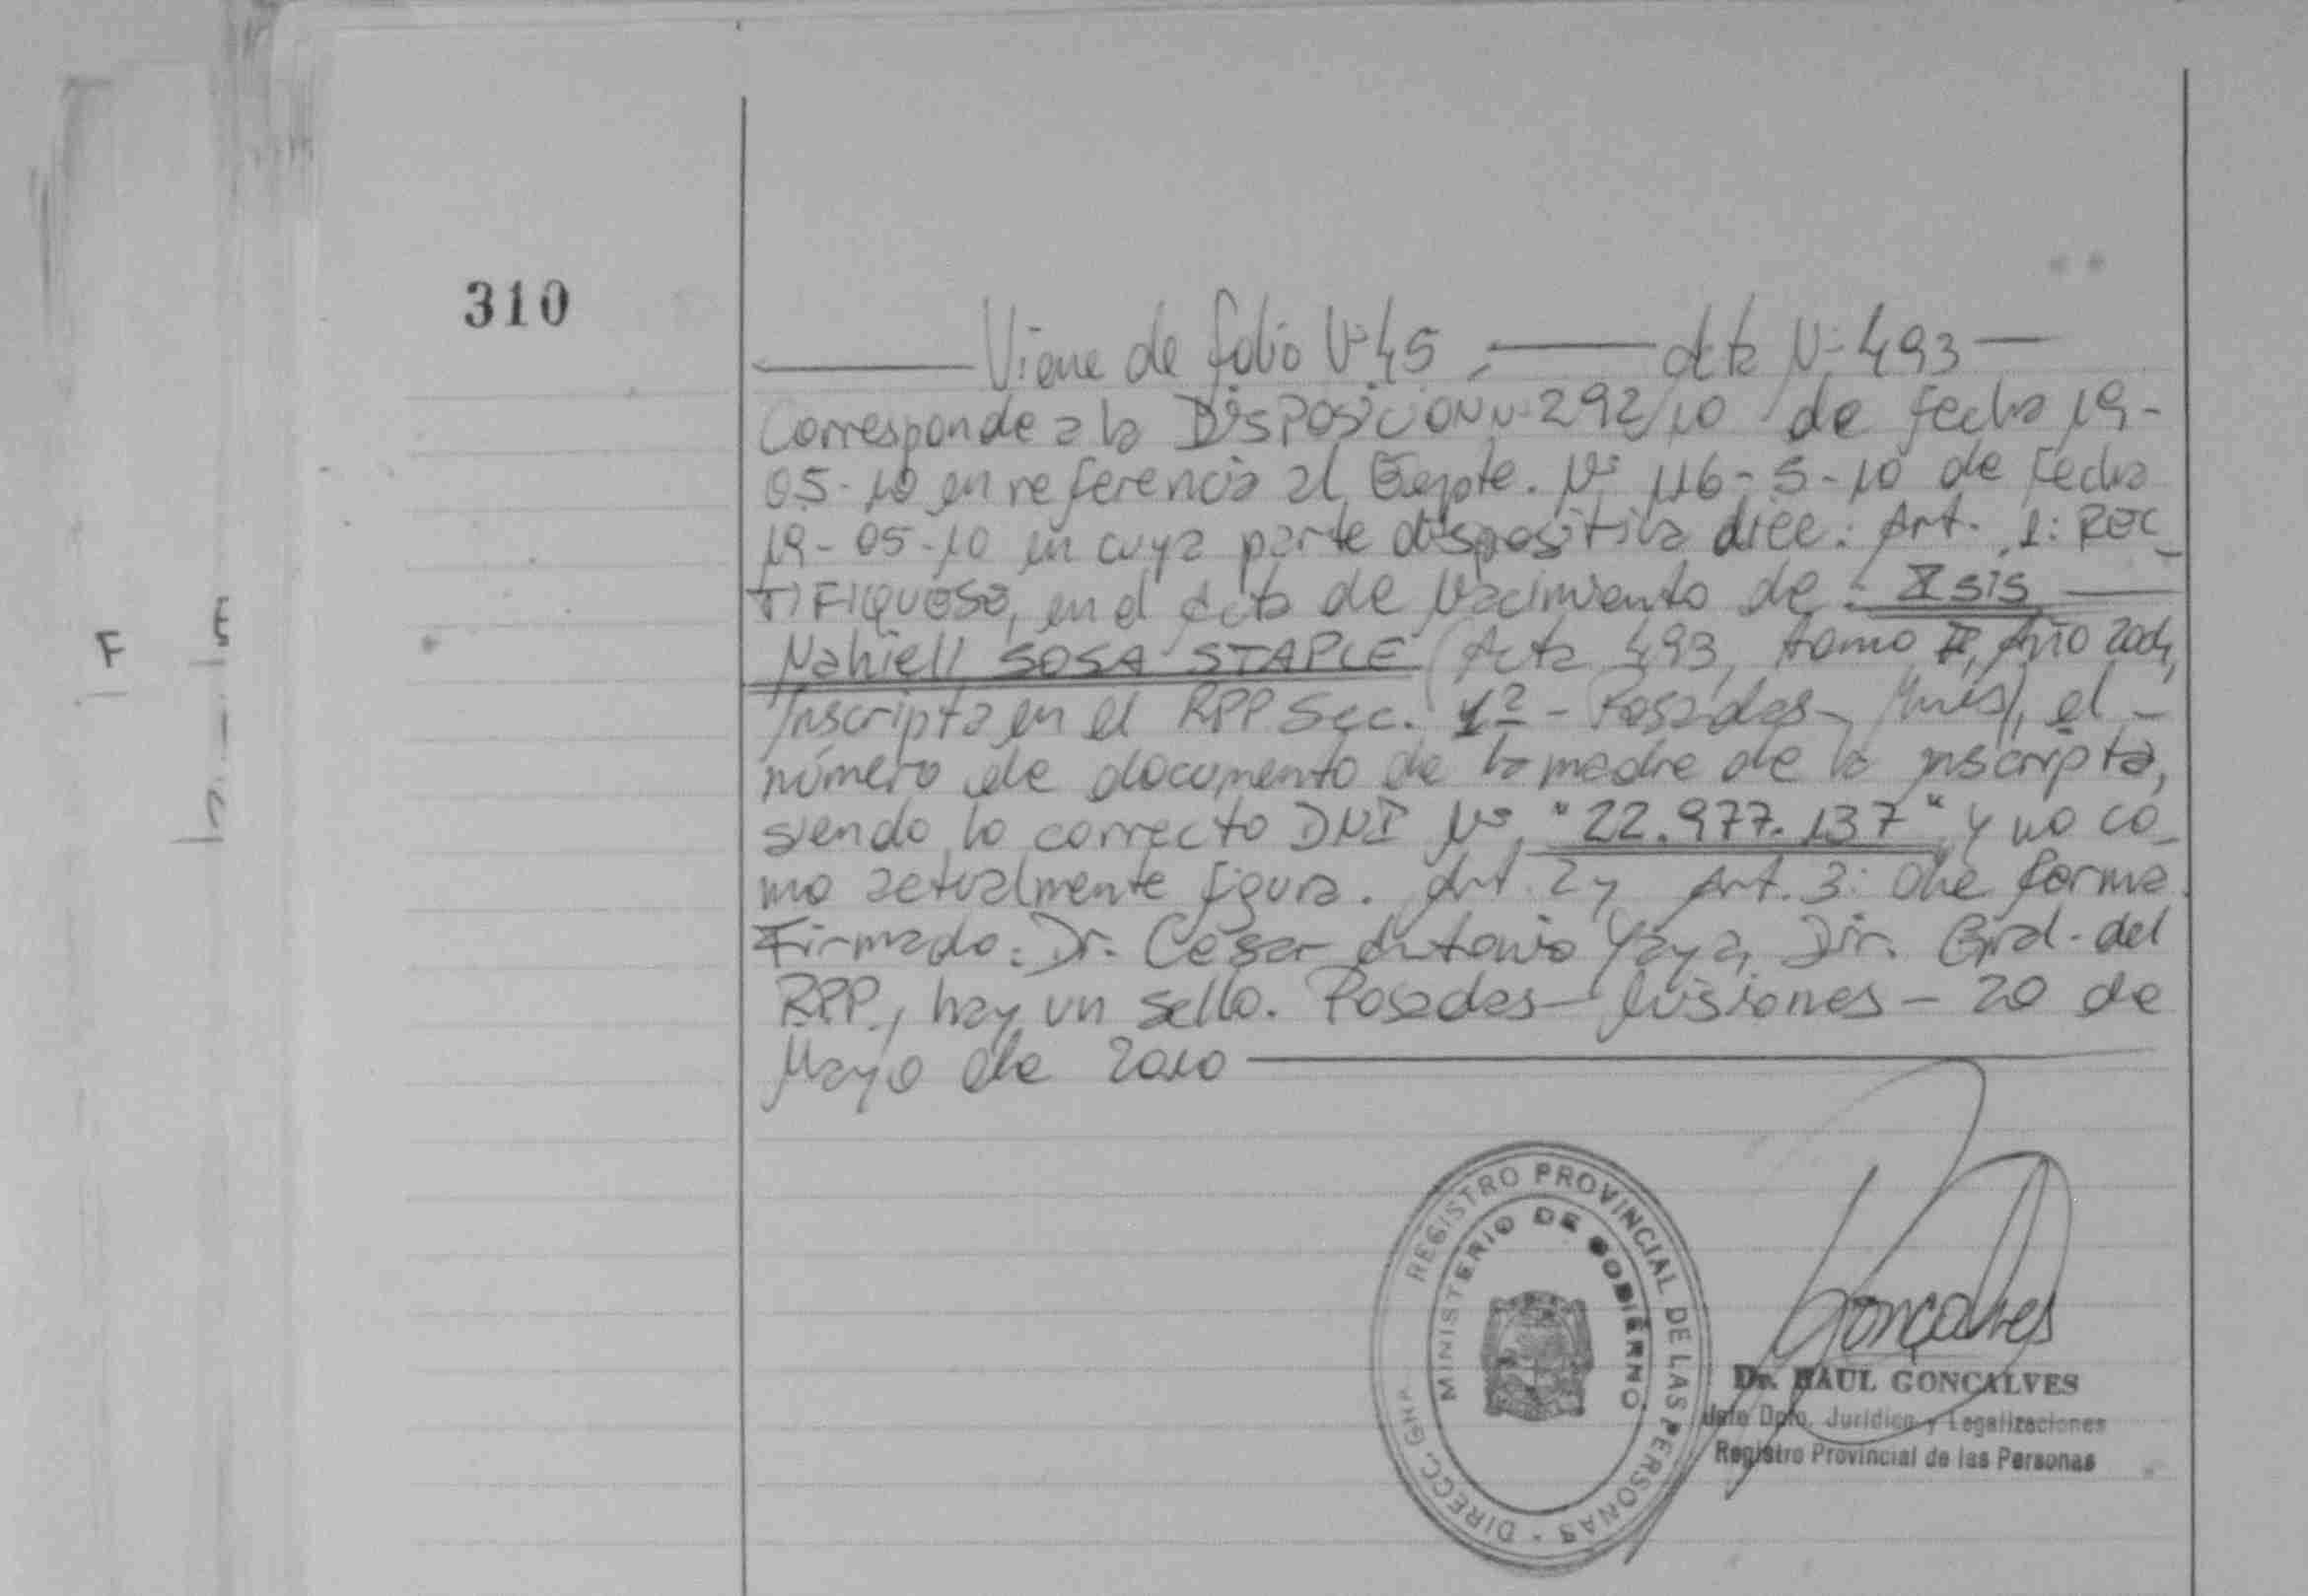 310
Viene de folio Nº 45 . — Acta Nº 493 —
Corresponde a la DISPOSICION Nº 292/10 de fecha 19-
05-10 en referencia al Expte. Nº 116-S-10 de fecha
19-05-10 en cuya parte dispositiva dice: Art. 1: REC_
TIFIQUESE, en el Acta de Nacimiento de: Isis —
Nahiell SOSA STAPLE (Acta 493, tomo II, Año 2004,
Inscripta en el RPP Sec. 1ª - Posadas - Mnes), el -
número de documento de la madre de la inscripta,
siendo lo correcto DNI Nº "22.977.137" y no co_
mo actualmente figura. Art. 2 y Art. 3: De forma.
Firmado: Dr. César Antonio Yaya, Dir. Gral. del
RPP., hay un sello. Posadas - Misiones - 20 de
Mayo de 2010
REGISTRO PROVINCIAL DE LAS PERSONAS - DIRECC. GRA
MINISTERIO DE GOBIERNO
Goncalves
Dr. RAUL GONCALVES
Jefe Dpto. Jurídico y Legalizaciones
Registro Provincial de las Personas
F